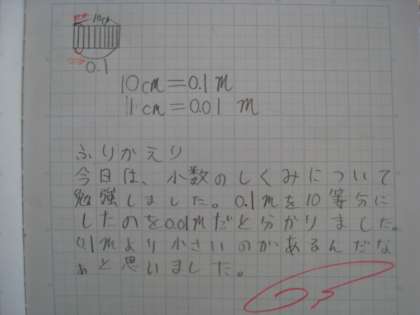 10cm
0.1
10cm=0.1m
1cm=0.01 m
ふりかえり
今日は、小数のしくみについて
勉強しました。0.1mを10等分に
したのを0.01mだと分かりました。
0.1mより小さいのがあるんだな
ぁと思いました。